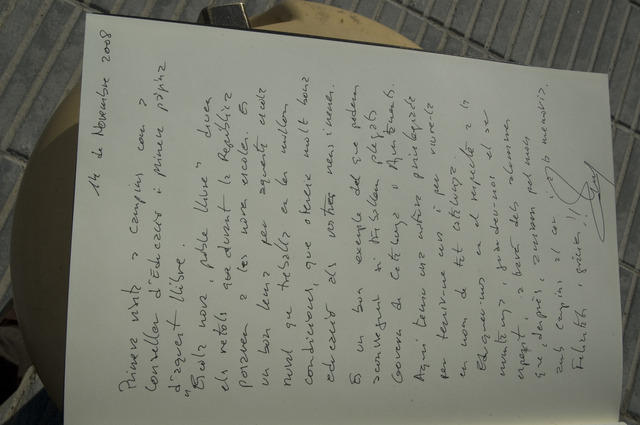 14 de Novembre 2008
Primera visita a Campins com a
Conseller d'Educació i primera pàgina
d'aquest llibre.
"Escola nova, poble lliure" diuen
els rètols que durant la República
posaven a les noves escoles. És
un bon lema per aquesta escola
rural que treballa en les millors
condicions, que ofereix molt bona
educació als vostres nens i nenes.
És un bon exemple del que podem
aconseguir si treballem plegats
Govern de Catalunya i Ajuntament.
Aquí teniu una natura privilegiada
per tenir-ne cura i per viure-la
en nom de tot Catalunya.
Eduquem-nos en el respecte a la
muntanya, guardeu-nos el seu
espai, a través dels alumnes
que, després, aniran pel món
amb Campins al cor i a la memòria.
Felicitats, gràcies!